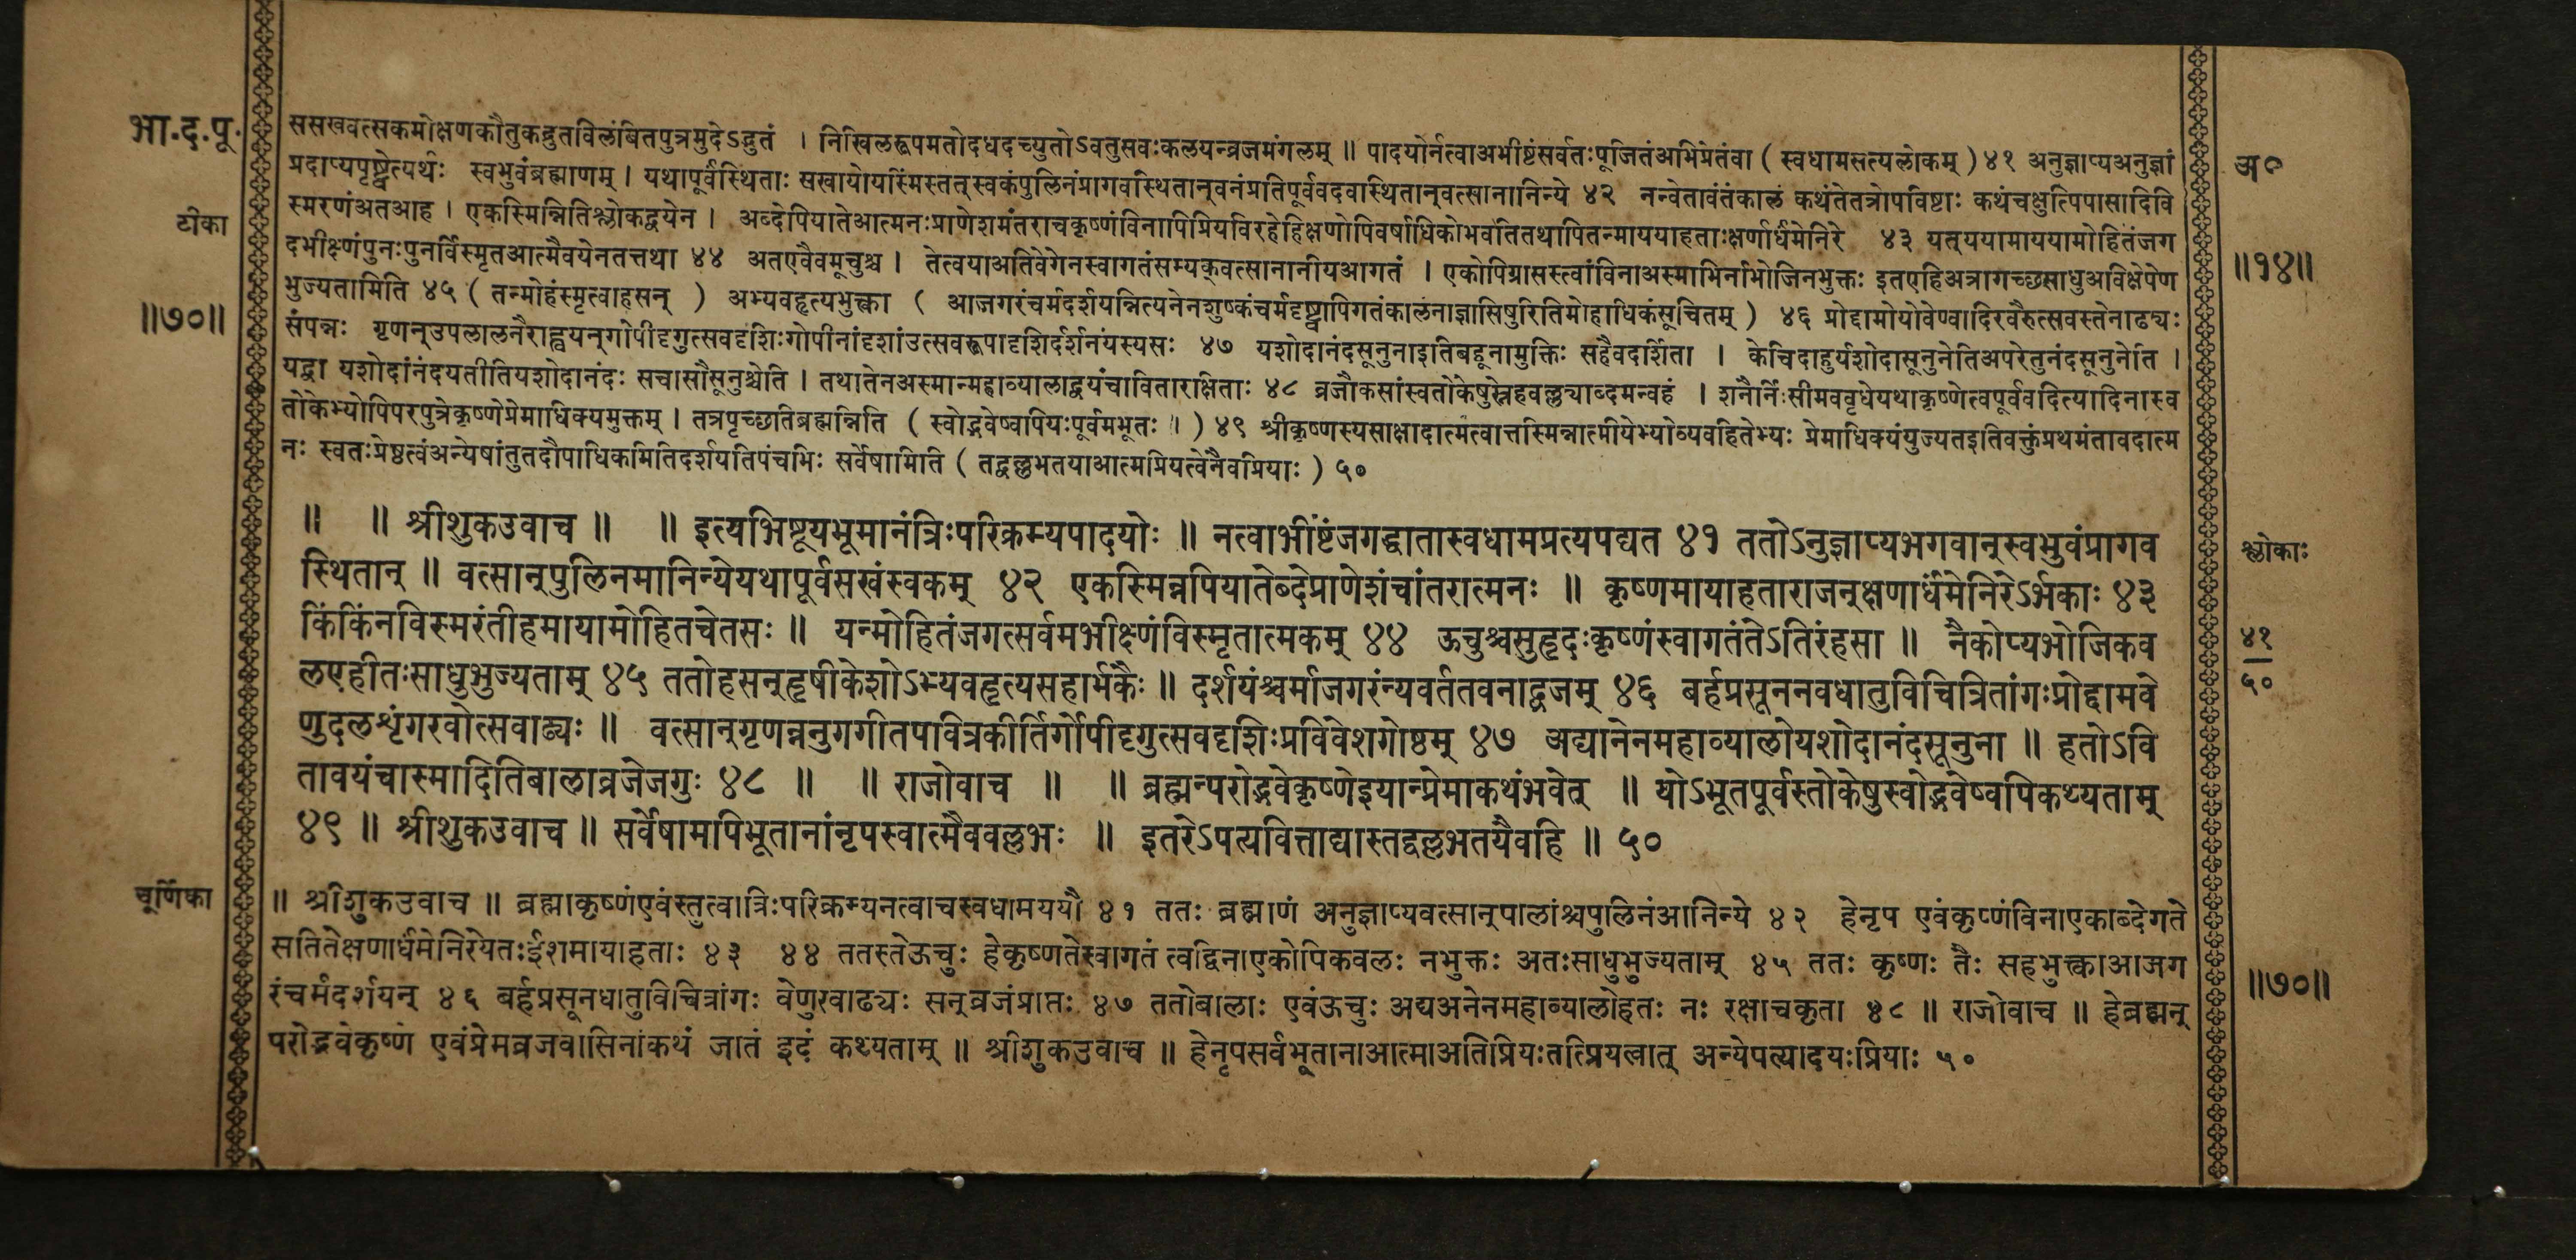 भा.द.पू.
ससखवत्सकमोक्षणकौतुकद्रुतविलंबितपुत्रमुदेऽद्भुतं । निखिलरूपमतोदधदच्युतोऽवतुसवःकलयन्व्रजमंगलम् ॥ पादयोर्नत्वाअभीष्टंसर्वतःपूजितंअभिप्रेतंवा ( स्वधामसत्यलोकम् ) ४१ अनुज्ञाप्यअनुज्ञां
प्रदाप्यपृष्ट्वेत्यर्थः स्वभुवंब्रह्माणम् । यथापूर्वंस्थिताः सखायोयस्मिंस्तत् स्वकंपुलिनंप्रागवस्थितान्वनंप्रतिपूर्ववदवास्थितान्वत्सानानिन्ये ४२ नन्वेतावंतंकालं कथंतेतत्रोपविष्टाः कथंचक्षुत्पिपासादिवि
स्मरणंअतआह । एकस्मिन्नितिश्लोकद्वयेन । अब्देपियातेआत्मनःप्राणेशमंतराचकृष्णंविनापिप्रियविरहेहिक्षणोपिवर्षाधिकोभवतितथापितन्माययाहताःक्षणार्धंमेनिरे ४३ यत्ययामाययामोहितंजग
दभीक्ष्णंपुनःपुनर्विस्मृतआत्मैवयेनतत्तथा ४४ अतएवैवमूचुश्च । तेत्वयाअतिवेगेनस्वागतंसम्यक्वत्सानानीयआगतं । एकोपिग्रासस्त्वांविनाअस्माभिर्नाभोजिनभुक्तः इतएहिअत्रागच्छसाधुअविक्षेपेण
भुज्यतामिति ४५ ( तन्मोहंस्मृत्वाहसन् ) अभ्यवहृत्यभुक्त्वा ( आजगरंचर्मदर्शयन्नित्यनेनशुष्कंचर्मदृष्ट्वापिगतंकालंनाज्ञासिषुरितिमोहाधिकंसूचितम् ) ४६ प्रोद्दामोयोवेण्वादिरवैरुत्सवस्तेनाढ्यः
संपन्नः गृणन्उपलालनैराह्वयन्गोपीदृगुत्सवदृंशिःगोपीनांदृशांउत्सवरूपादृशिर्दर्शनंयस्यसः ४७ यशोदानंदसूनुनाइतिबहूनामुक्तिः सहैवदर्शिता । केचिदाहुर्यशोदासूनुनेतिअपरेतुनंदसूनुनेति ।
यद्वा यशोदांनंदयतीतियशोदानंदः सचासौसूनुश्चेति । तथातेनअस्मान्महाव्यालाद्वयंचाविताराक्षिताः ४८ व्रजौकसांस्वतोकेषुस्नेहवल्ल्याब्दमन्वहं । शनैर्निःसीमववृधेयथाकृष्णेत्वपूर्ववदित्यादिनास्व
तोकेभ्योपिपरपुत्रेकृष्णेप्रेमाधिक्यमुक्तम् । तत्रपृच्छतिब्रह्मन्निति ( स्वोद्भवेष्वपियःपूर्वमभूतः । ) ४९ श्रीकृष्णस्यसाक्षादात्मत्वात्तस्मिन्नात्मीयेभ्योव्यवहितेभ्यः प्रेमाधिक्यंयुज्यतइतिवक्तुंप्रथमंतावदात्म
नः स्वतःप्रेष्ठत्वंअन्येषांतुतदौपाधिकमितिदर्शयतिपंचभिः सर्वेषामिति ( तद्वल्लभतयाआत्मप्रियत्वेनैवप्रियाः ) ५०
टीका
॥७०॥
अ०
॥१४॥
॥ ॥ श्रीशुकउवाच ॥ ॥ इत्यभिष्टूयभूमानंत्रिःपरिक्रम्यपादयोः ॥ नत्वाभीष्टंजगद्धातास्वधामप्रत्यपद्यत ४१ ततोऽनुज्ञाप्यभगवान्स्वभुवंप्रागव
स्थितान् ॥ वत्सान्पुलिनमानिन्येयथापूर्वसखंस्वकम् ४२ एकस्मिन्नपियातेब्देप्राणेशंचांतरात्मनः ॥ कृष्णमायाहताराजन्क्षणार्धंमेनिरेऽर्भकाः ४३
किंकिंनविस्मरंतीहमायामोहितचेतसः ॥ यन्मोहितंजगत्सर्वमभीक्ष्णंविस्मृतात्मकम् ४४ ऊचुश्चसुहृदःकृष्णंस्वागतंतेऽतिरंहसा ॥ नैकोप्यभोजिकव
लएहीतःसाधुभुज्यताम् ४५ ततोहसन्हृषीकेशोऽभ्यवहृत्यसहार्भकैः ॥ दर्शयंश्चर्माजगरंन्यवर्ततवनाद्व्रजम् ४६ बर्हप्रसूननवधातुविचित्रितांगःप्रोद्दामवे
णुदलशृंगरवोत्सवाढ्यः ॥ वत्सान्गृणन्ननुगगीतपवित्रकीर्तिर्गोपीदृगुत्सवदृशिःप्रविवेशगोष्ठम् ४७ अद्यानेनमहाव्यालोयशोदानंदसूनुना ॥ हतोऽवि
तावयंचास्मादितिबालाव्रजेजगुः ४८ ॥ ॥ राजोवाच ॥ ॥ ब्रह्मन्परोद्भवेकृष्णेइयान्प्रेमाकथंभवेत् ॥ योऽभूतपूर्वस्तोकेषुस्वोद्भवेष्वपिकथ्यताम्
४९ ॥ श्रीशुकउवाच ॥ सर्वेषामपिभूतानांनृपस्वात्मैववल्लभः ॥ इतरेऽपत्यवित्ताद्यास्तद्वल्लभतयैवहि ॥ ५०
श्लोकाः
४१
५०
चूर्णिका
॥ श्रीशुकउवाच ॥ ब्रह्माकृष्णंएवंस्तुत्वात्रिःपरिक्रम्यनत्वाचस्वधामययौ ४१ ततः ब्रह्माणं अनुज्ञाप्यवत्सान्पालांश्चपुलिनंआनिन्ये ४२ हेनृप एवंकृष्णंविनाएकाब्देगते
सतितेक्षणार्धंमेनिरेयेतःईशमायाहताः ४३ ४४ ततस्तेऊचुः हेकृष्णतेस्वागतं त्वद्विनाएकोपिकवलः नभुक्तः अतःसाधुभुज्यताम् ४५ ततः कृष्णः तैः सहभुक्त्वाआजग
रंचर्मदर्शयन् ४६ बर्हप्रसूनधातुविचित्रांगः वेणुरवाढ्यः सन्व्रजंप्राप्तः ४७ ततोबालाः एवंऊचुः अद्यअनेनमहाव्यालोहतः नः रक्षाचकृता ४८ ॥ राजोवाच ॥ हेब्रह्मन्
परोद्भवेकृष्णे एवंप्रेमव्रजवासिनांकथं जातं इदं कथ्यताम् ॥ श्रीशुकउवाच ॥ हेनृपसर्वभूतानाआत्माअतिप्रियःतत्प्रियत्वात् अन्येपत्यादयःप्रियाः ५०
॥७०॥